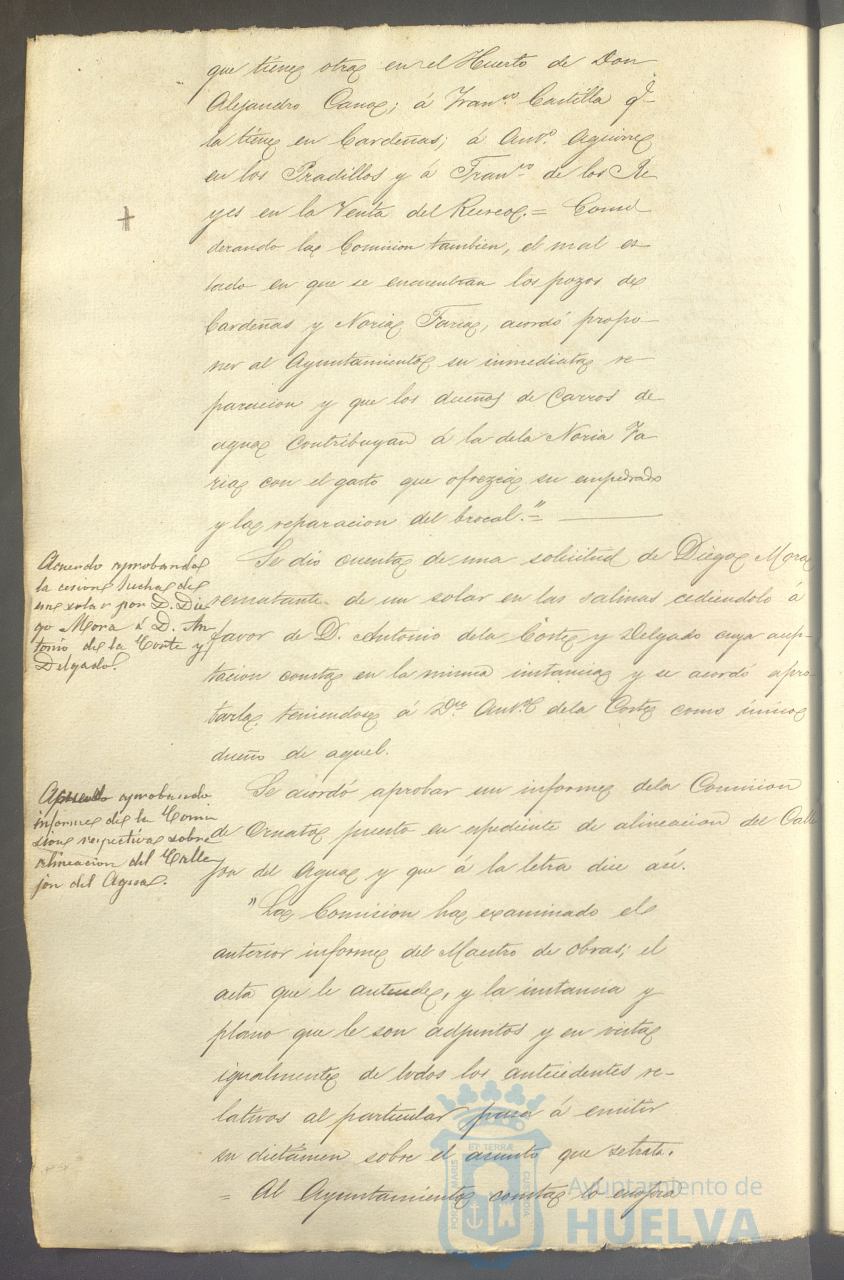 que tiene otra en el Huerto de Don
Alejandro Cano; á Fran.co Castilla q.e
la tiene en Cardeñas; á Ant.o Aguirre
en los Pradillos y á Fran.co de los Re-
yes en la Venta del = Consi
derando la Comision tambien, el mal es-
tado en que se encuentran los pozos de
Cardeñas y Noria Faria, acordó propo-
ner al Ayuntamiento su inmediata re-
paracion y que los dueños de Carros de
agua contribuyan á la dela Noria Fa-
ria con el gasto que ofrezca su empedrado
y la reparacion del brocal."=
Acuerdo aprobando
la cesion hecha de
un solar por D. Die
go Mora á D. An-
tonio de la Corte y
Delgado.
Se dió cuenta de una solicitud de Diego Mora
rematante de un solar en las salinas cediendolo á
favor de D. Antonio dela Corte y Delgado cuya acep-
tacion consta en la misma instancia y se acordó apro-
barla teniendose á Dn. Ant.o dela Corte como único
dueño de aquel.
Acuerdo aprobando
informe de la Comi
sion respectiva sobre
alineacion del Calle
jon del Agua.
Se acordó aprobar un informe dela Comision
de Ornato puesto en espediente de alineacion del Calle
jon del Agua y que á la letra dice asi.
"La Comision ha examinado el
anterior informe del Maestro de obras; el
acta que le antecede, y la instancia y
plano que le son adjuntos y en vista
igualmente de todos los antecedentes re-
lativos al particular pasa á emitir
su dictámen sobre el asunto que se trata.
= Al Ayuntamiento consta lo
PORTUS MARIS ET TERRÆ CUSTODIA
Ayuntamiento de
HUELVA